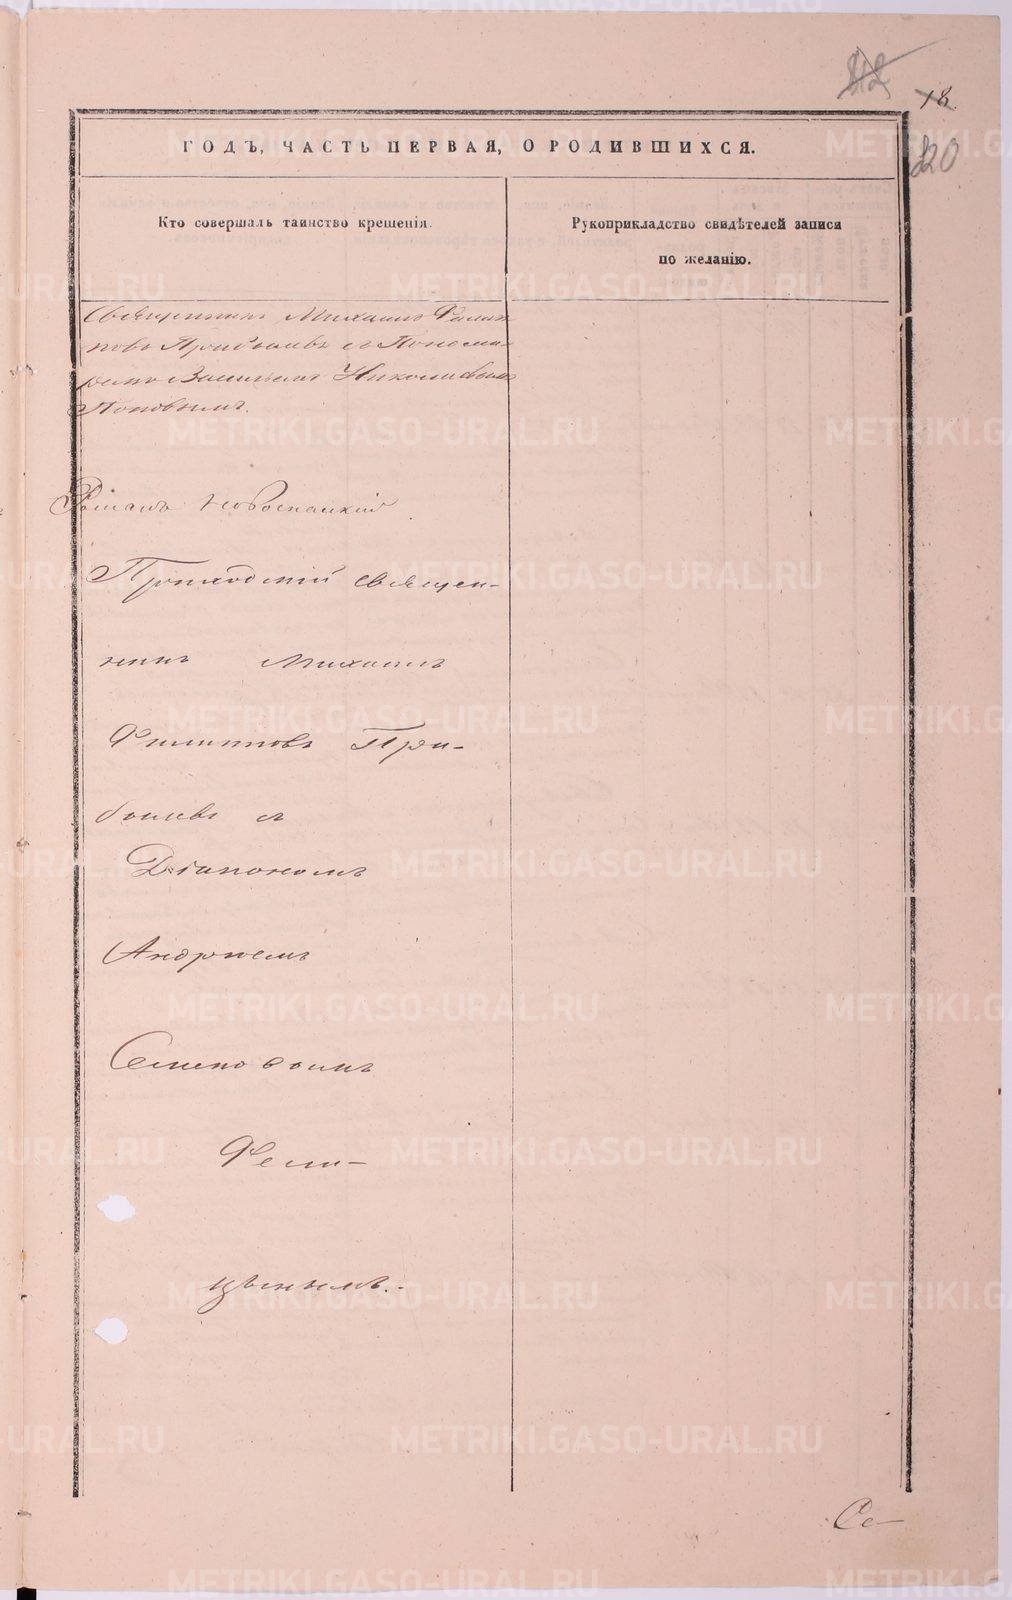 18
220
ГОДЪ, ЧАСТЬ ПЕРВАЯ, О РОДИВШИХСЯ.
Кто совершалъ таинство крещенія.
Рукоприкладство свидѣтелей записи
по желанію.
Священникъ Михаилъ Филип-
повъ Прибылевъ съ Понома-
ремъ Васильемъ Николаевымъ
Поповымъ.
Романъ Новоспацкій
Приходскій священ-
никъ Михаилъ
Филипповъ При-
былевъ съ
Діакономъ
Андрѣемъ
Семеновымъ
Феми-
Се-
METRIKI.GASO-URAL.RU